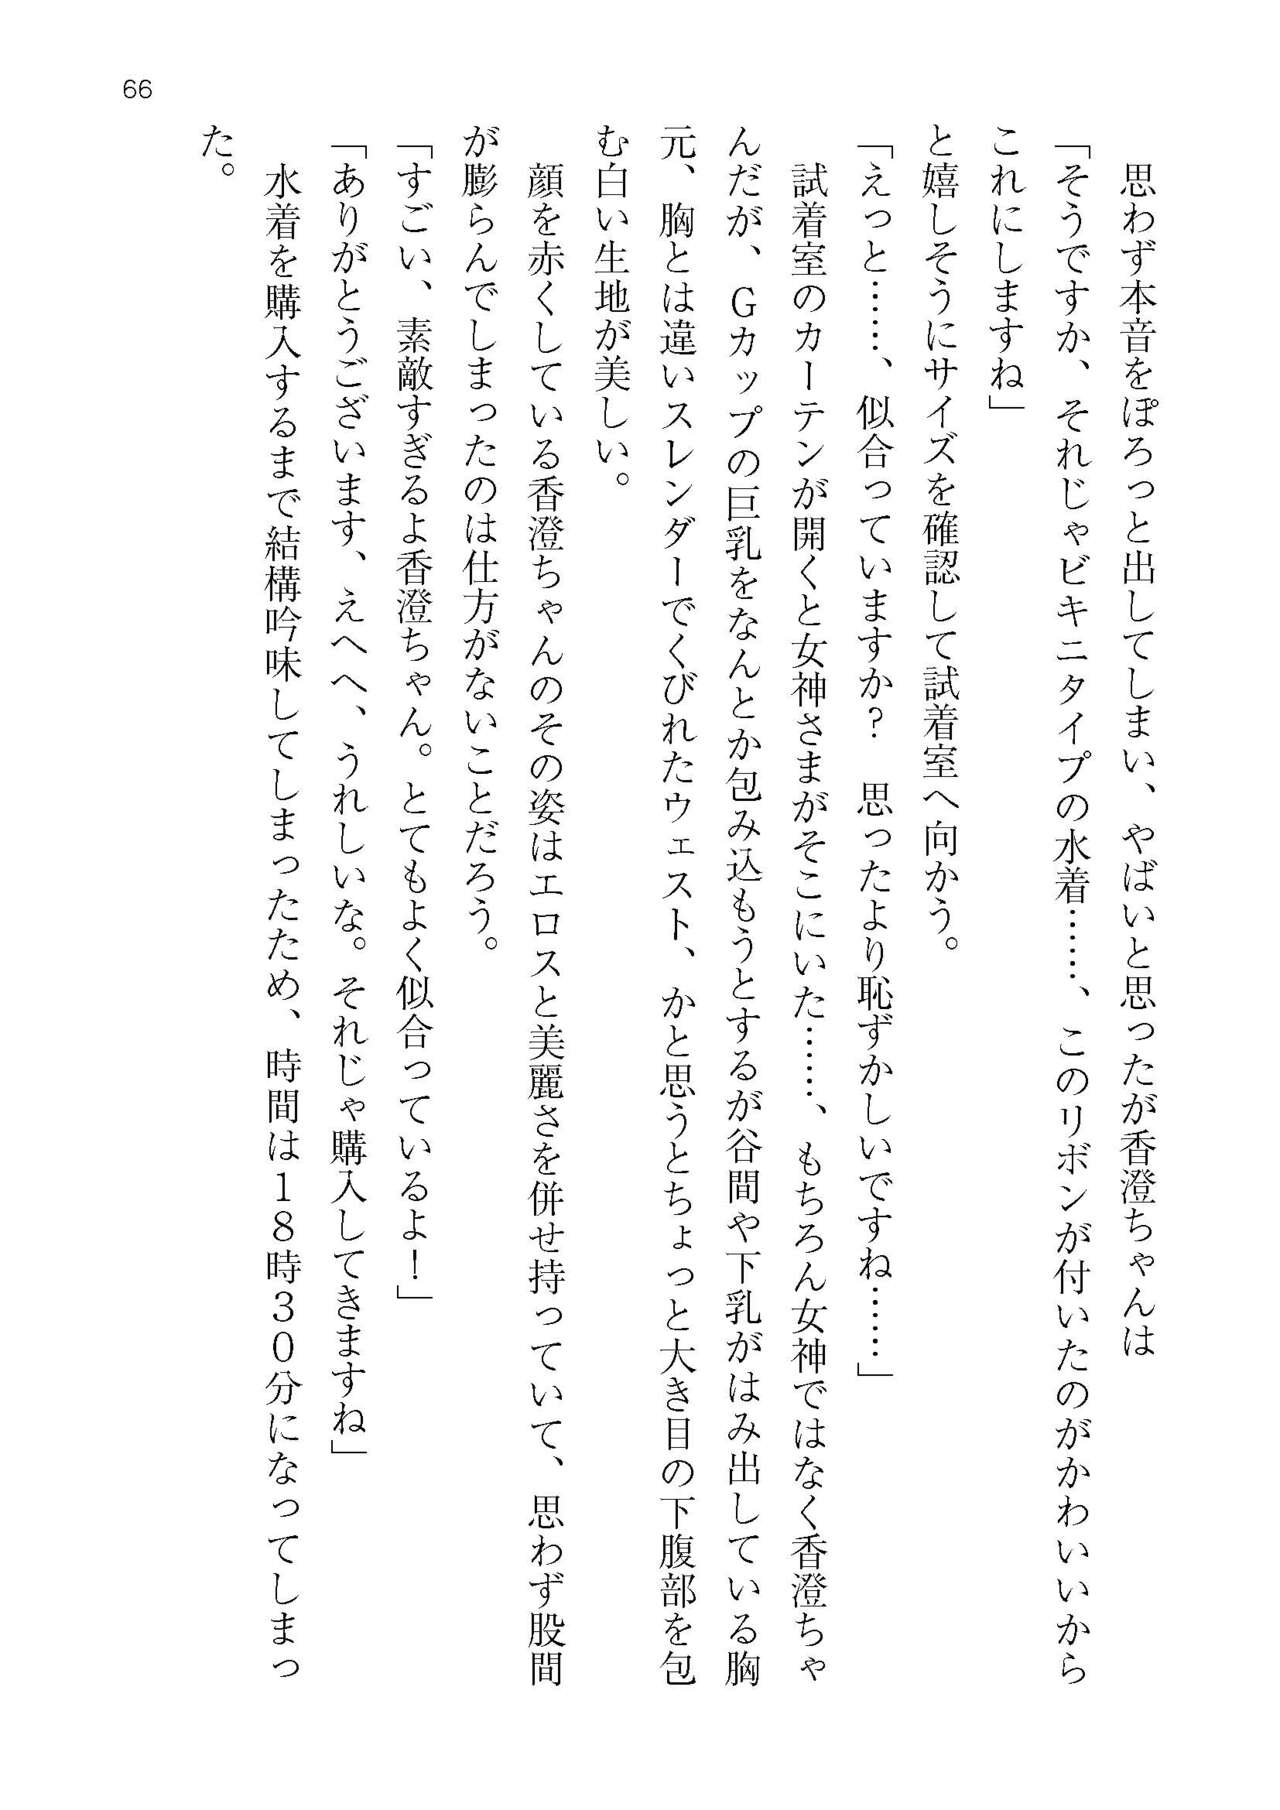 66
　思わず本音をぽろっと出してしまい、やばいと思ったが香澄ちゃんは
「そうですか、それじゃビキニタイプの水着……、このリボンが付いたのがかわいいから
これにしますね」
と嬉しそうにサイズを確認して試着室へ向かう。
「えっと……、似合っていますか？　思ったより恥ずかしいですね……」
　試着室のカーテンが開くと女神さまがそこにいた……、もちろん女神ではなく香澄ちゃ
んだが、Ｇカップの巨乳をなんとか包み込もうとするが谷間や下乳がはみ出している胸
元、胸とは違いスレンダーでくびれたウェスト、かと思うとちょっと大き目の下腹部を包
む白い生地が美しい。
　顔を赤くしている香澄ちゃんのその姿はエロスと美麗さを併せ持っていて、思わず股間
が膨らんでしまったのは仕方がないことだろう。
「すごい、素敵すぎるよ香澄ちゃん。とてもよく似合っているよ！」
「ありがとうございます、えへへ、うれしいな。それじゃ購入してきますね」
　水着を購入するまで結構吟味してしまったため、時間は１８時３０分になってしまっ
た。